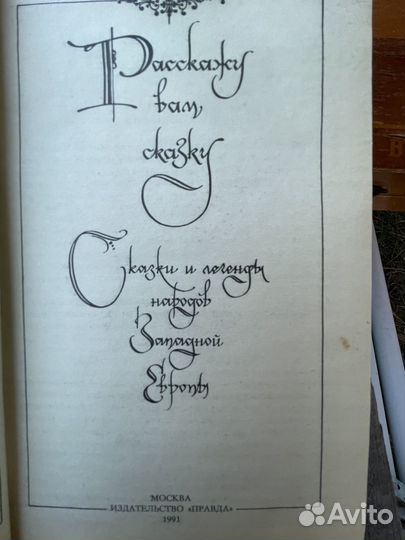 Расскажу
вам
сказку
Сказки и легенды
народов
Западной
Европы
МОСКВА
ИЗДАТЕЛЬСТВО «ПРАВДА»
1991
Avito